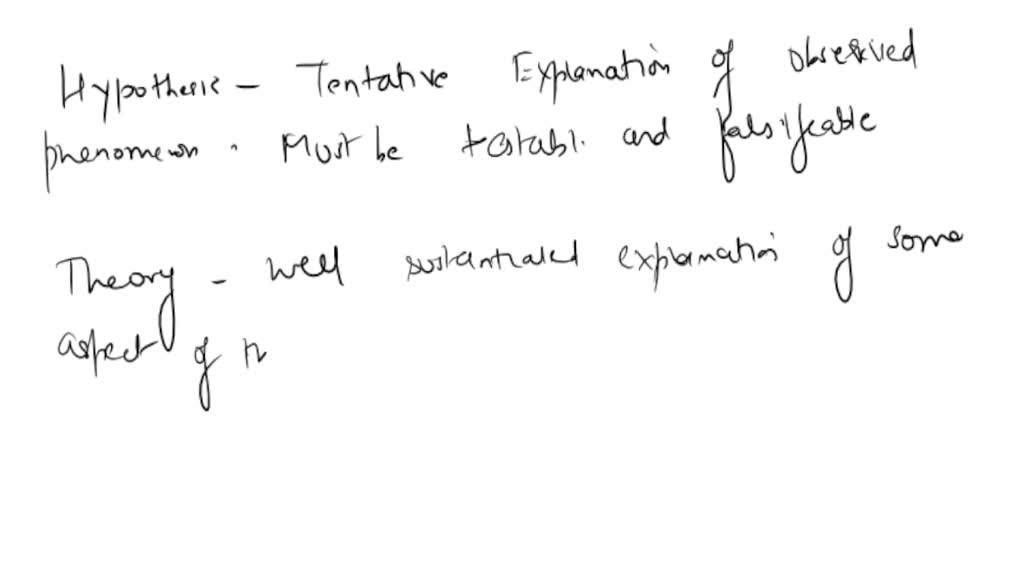 Hypothesis - Tentative Explanation of observed
phenomenon. Must be testabl. and falsifiable
Theory - well sustantiated explanation of some
aspect of n